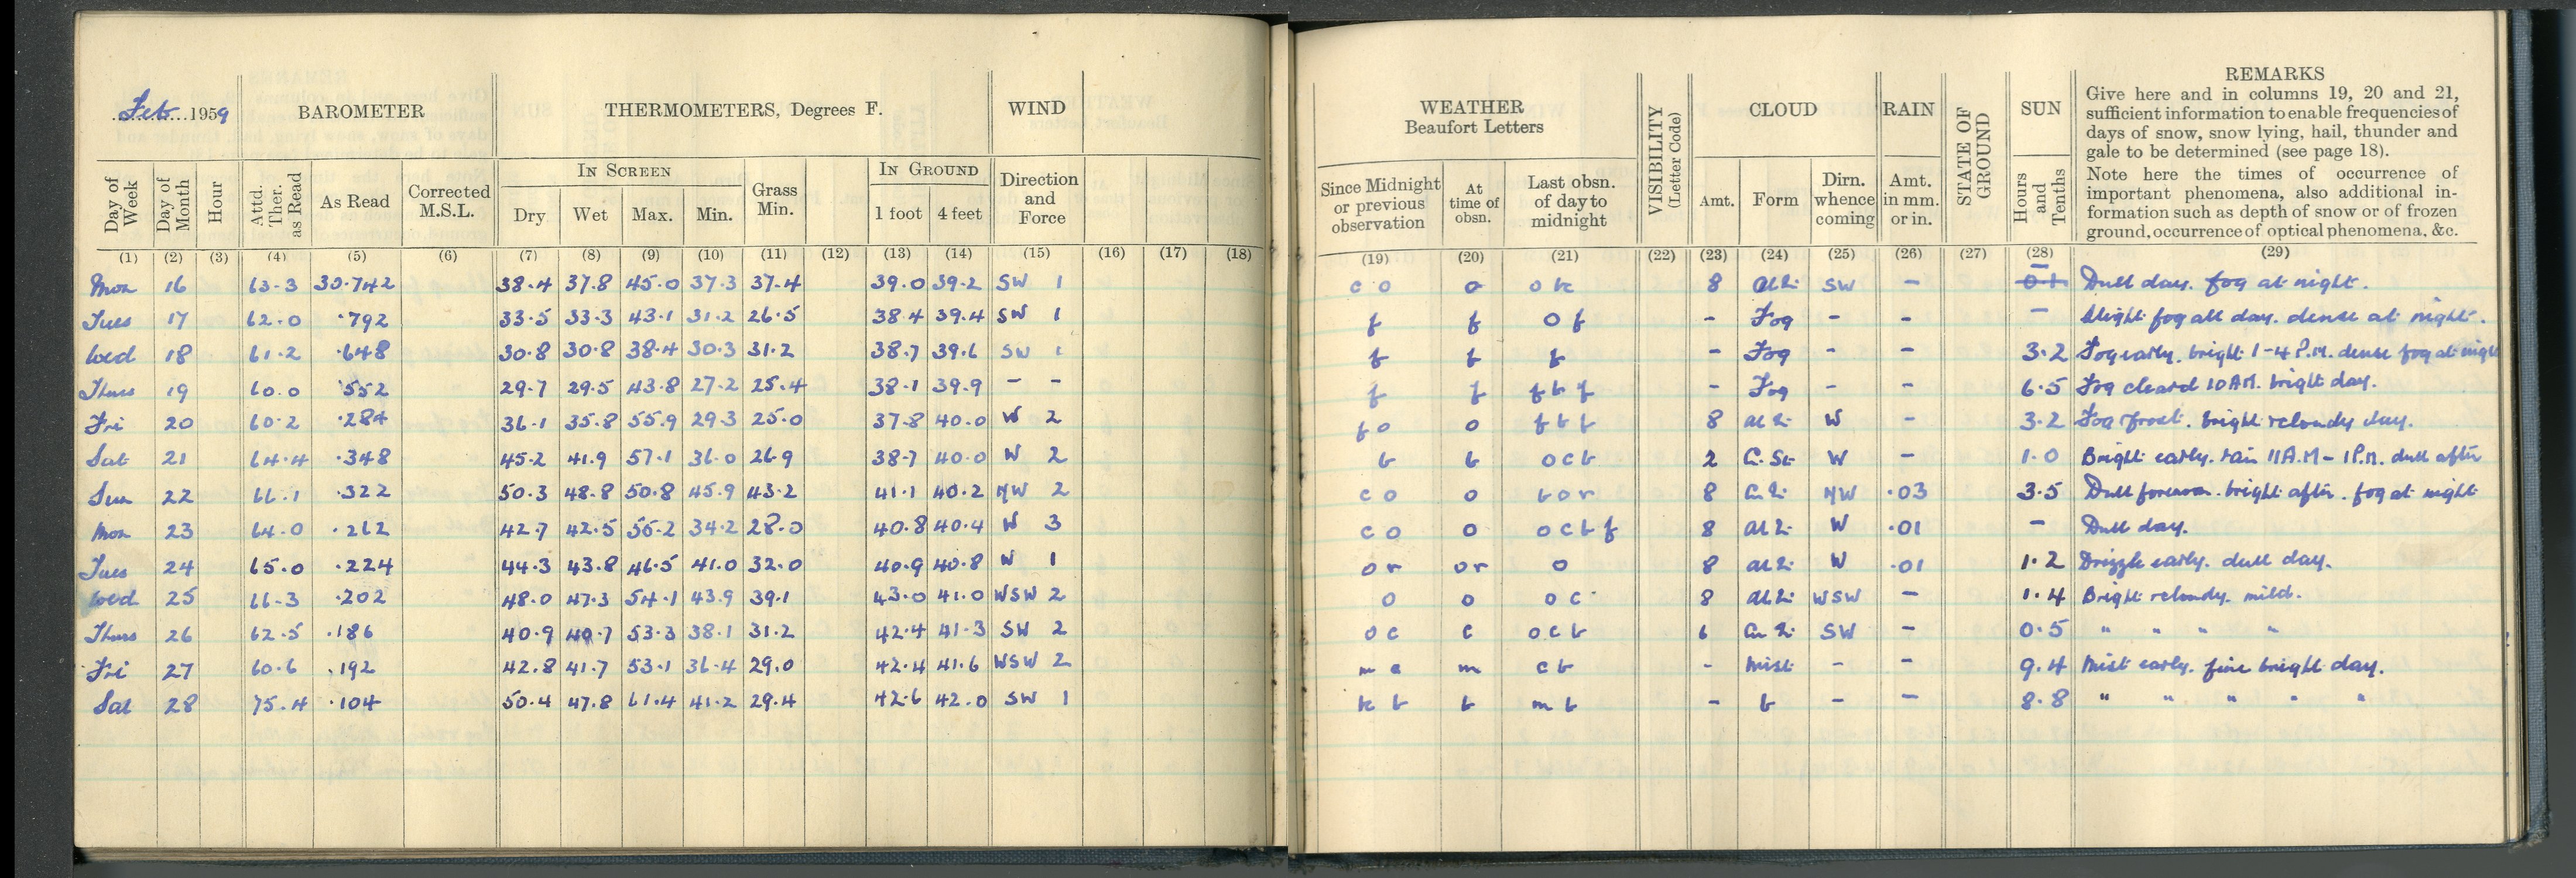 Feb 1959 BAROMETER THERMOMETERS, Degrees F. WIND
IN SCREEN IN GROUND
Day of Week Day of Month Hour Attd. Ther. as Read As Read Corrected M.S.L. Dry Wet Max. Min. Grass Min. 1 foot 4 feet Direction and Force
(1) (2) (3) (4) (5) (6) (7) (8) (9) (10) (11) (12) (13) (14) (15) (16) (17) (18)
Mon 16 63.3 30.742 38.4 37.8 45.0 37.3 37.4 39.0 39.2 SW 1
Tues 17 62.0 .792 33.5 33.3 43.1 31.2 26.5 38.4 39.4 SW 1
Wed 18 61.2 .648 30.8 30.8 38.4 30.3 31.2 38.7 39.6 SW 1
Thurs 19 60.0 .552 29.7 29.5 43.8 27.2 25.4 38.1 39.9 - -
Fri 20 60.2 .284 36.1 35.8 55.9 29.3 25.0 37.8 40.0 W 2
Sat 21 64.4 .348 45.2 41.9 57.1 36.0 26.9 38.7 40.0 W 2
Sun 22 66.1 .322 50.3 48.8 50.8 45.9 43.2 41.1 40.2 NW 2
Mon 23 64.0 .262 42.7 42.5 55.2 34.2 28.0 40.8 40.4 W 3
Tues 24 65.0 .224 44.3 43.8 46.5 41.0 32.0 40.9 40.8 W 1
Wed 25 66.3 .202 48.0 47.3 54.1 43.9 39.1 43.0 41.0 WSW 2
Thurs 26 62.5 .186 40.9 40.7 53.3 38.1 31.2 42.4 41.3 SW 2
Fri 27 60.6 .192 42.8 41.7 53.1 36.4 29.0 42.4 41.6 WSW 2
Sat 28 75.4 .104 50.4 47.8 61.4 41.2 29.4 42.6 42.0 SW 1
WEATHER
Beaufort Letters
VISIBILITY (Letter Code) CLOUD RAIN STATE OF GROUND SUN
REMARKS
Give here and in columns 19, 20 and 21,
sufficient information to enable frequencies of
days of snow, snow lying, hail, thunder and
gale to be determined (see page 18).
Note here the times of occurrence of
important phenomena, also additional in-
formation such as depth of snow or of frozen
ground, occurrence of optical phenomena, &c.
Since Midnight or previous observation At time of obsn. Last obsn. of day to midnight Amt. Form Dirn. whence coming Amt. in mm. or in. Hours and Tenths
(19) (20) (21) (22) (23) (24) (25) (26) (27) (28) (29)
c o o o k 8 SW - - Dull day. fog at night.
f f o f - Fog - - - Slight fog all day. dense at night.
f f f - Fog - - 3.2 Fog early. bright 1-4 P.M. dense fog at night
f f f b f - Fog - - 6.5 Fog cleard 10 AM. bright day.
f o o f b f 8 W - 3.2 Fog frost. bright & cloudy day.
b b o c b 2 Ci. St. W - 1.0 Bright early. rain 11 A.M - 1 P.M. dull after
c o o b o r 8 NW .03 3.5 Dull forenoon. bright after. fog at night
c o o o c b f 8 W .01 - Dull day.
o r o r o 8 W .01 1.2 Drizzle early. dull day.
o o o c 8 WSW - 1.4 Bright & cloudy. mild.
o c c o c b 6 SW - 0.5 " " " "
m c m c b - Mist - - 9.4 Mist early. fine bright day.
k b b m b - b - - 8.8 " " " " "